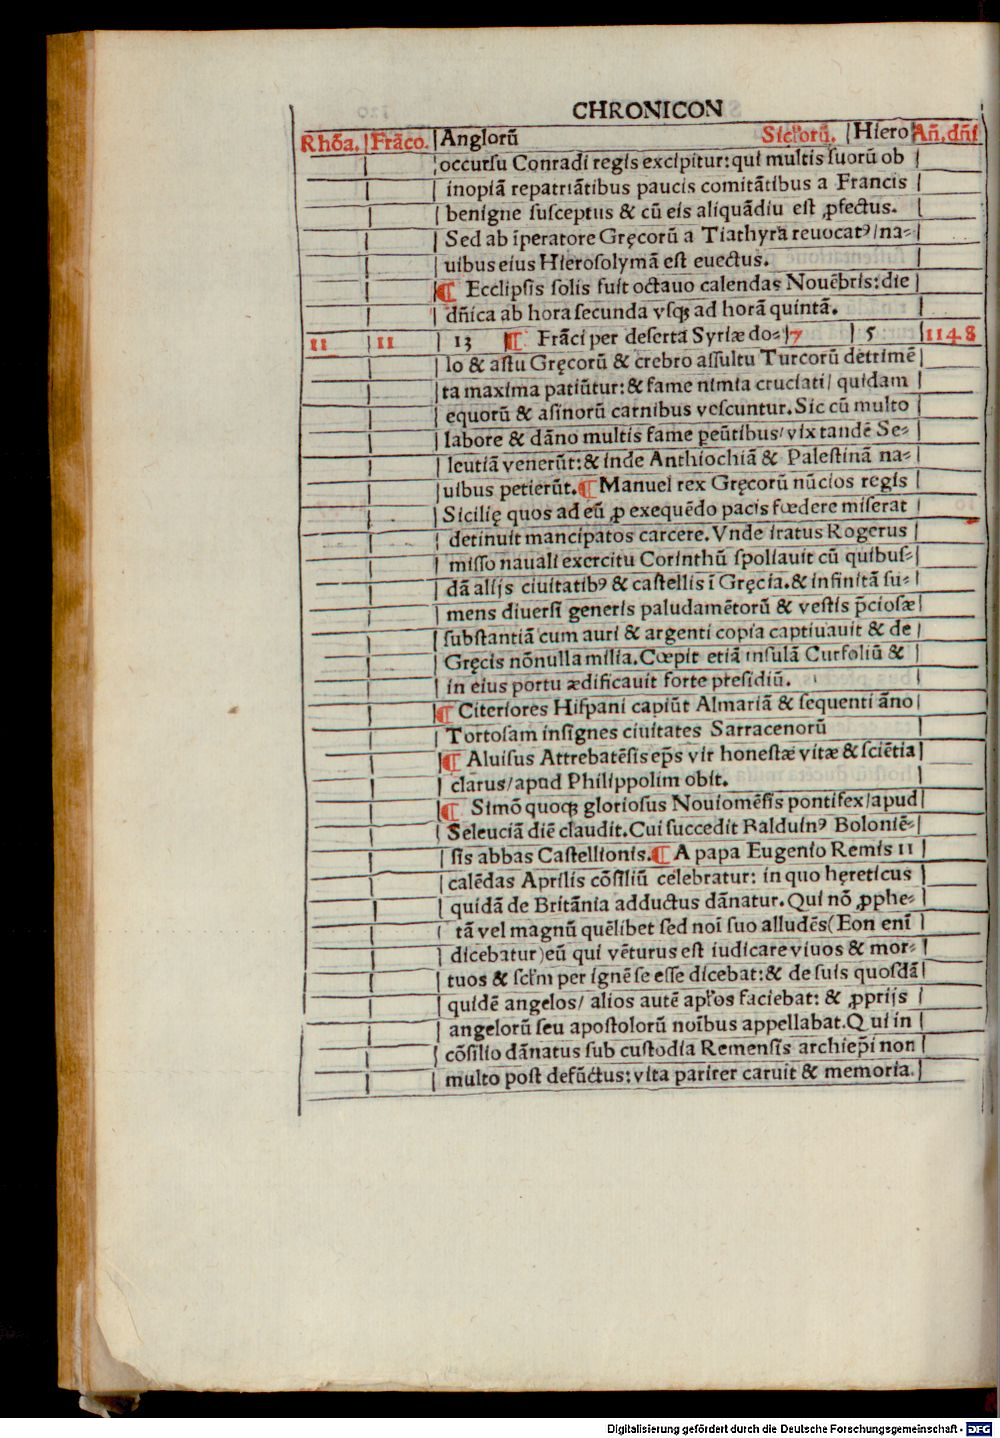 CHRONICON
Rhõa. Frãco. Anglorũ Sicl'orũ. Hiero Añ.dñi
occurſu Conradi regis excipitur:qui multis ſuorũ ob
inopiã repatriãtibus paucis comitãtibus a Francis
benigne ſuſceptus & cũ eis aliquãdiu eſt ꝓfectus.
Sed ab ĩperatore Gręcorũ a Tiathyra reuocatꝰ/na⸗
uibus eius Hieroſolymã eſt euectus.
¶ Ecclipſis ſolis fuit octauo calendas Nouẽbris:die
dñica ab hora ſecunda vſqꝫ ad horã quintã.
11 11 13 ¶ Frãci per deſerta Syriæ do⸗ 7 5 1148
lo & aſtu Gręcorũ & crebro aſſultu Turcorũ detrimẽ
ta maxima patiũtur:& fame nimia cruciati/ quidam
equorũ & aſinorũ carnibus veſcuntur.Sic cũ multo
labore & dãno multis fame ꝑeũtibus/vix tandẽ Se⸗
leutiã venerũt:& inde Anthiochiã & Paleſtinã na⸗
uibus petierũt.¶Manuel rex Gręcorũ nũcios regis
Sicilię quos ad eũ ꝓ exequẽdo pacis fœdere miſerat
detinuit mancipatos carcere.Vnde iratus Rogerus
miſſo nauali exercitu Corinthũ ſpoliauit cũ quibuſ⸗
dã alijs ciuitatibꝰ & caſtellis ĩ Gręcia.& infinitã ſu⸗
mens diuerſi generis paludamẽtorũ & veſtis p̃cioſæ
ſubſtantiã cum auri & argenti copia captiuauit & de
Gręcis nõnulla milia.Cœpit etiã inſulã Curfoliũ &
in eius portu ædificauit forte preſidiũ.
¶ Citeriores Hiſpani capiũt Almariã & ſequenti ãno
Tortoſam inſignes ciuitates Sarracenorũ
¶ Aluiſus Attrebatẽſis ep̃s vir honeſtæ vitæ & ſciẽtia
clarus/apud Philippolim obit.
¶ Simõ quoqꝫ glorioſus Nouiomẽſis pontifex/apud
Seleuciã diẽ claudit.Cui ſuccedit Balduinꝰ Boloniẽ⸗
ſis abbas Caſtellionis.¶A papa Eugenio Remis 11
calẽdas Aprilis cõſiliũ celebratur: in quo hęreticus
quidã de Britãnia adductus dãnatur.Qui nõ ꝓphe⸗
tã vel magnũ quẽlibet ſed noĩ ſuo alludẽs(Eon enĩ
dicebatur)eũ qui vẽturus eſt iudicare viuos & mor⸗
tuos & ſcl'm per ignẽ ſe eſſe dicebat:& de ſuis quoſdã
quidẽ angelos/ alios autẽ apl'os faciebat: & ꝓprijs
angelorũ ſeu apoſtolorũ noĩbus appellabat.Qui in
cõſilio dãnatus ſub cuſtodia Remenſis archiep̃i non
multo poſt defũctus:vita pariter caruit & memoria.
Digitalisierung gefördert durch die Deutsche Forschungsgemeinschaft - DFG